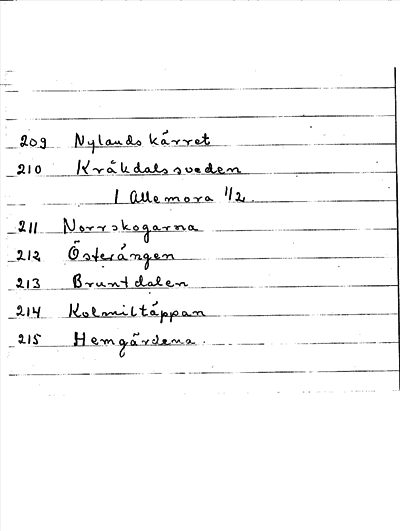 209 Nylandskärret
210 Kråkdalssveden
1 Allemora 1/2.
211 Norrskogarna
212 Österängen
213 Bruntdalen
214 Kolmiltäppan
215 Hemgärdena.